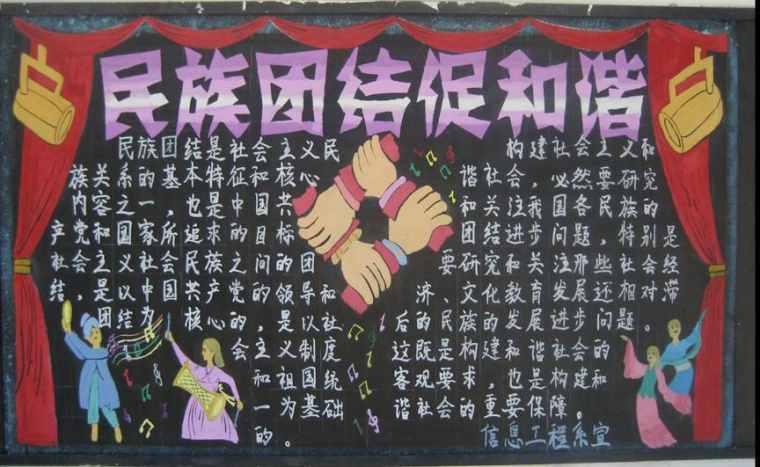 民族团结促和谐
民族团结是社会主义民
族关系的基本特征和核心
内容之一,也是中国共
产党和国家所追求的目标
社会主义社会民族之间的团
结,是以中国共产党的领导和
团结为核心的,是以社
会主义制度
和祖国统
一为基础
的。
构建社会主义和
谐社会,必然要研究
和关注我国各民族的
团结进步问题,特别是
要研究和关注那些社会经
济、文化教育发展还相对滞
后的民族发展进步问题。
这既是构建和谐社会的
客观要求,也是构建和
谐社会的重要保障。
信息工程系宣